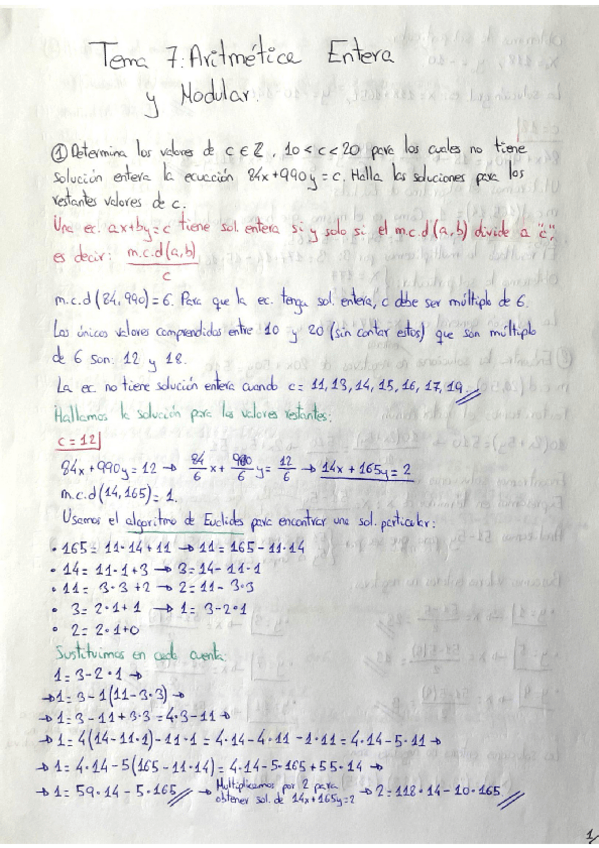 Tema 7: Aritmética Entera
y Modular.
① Determina los valores de c ∈ ℤ, 10 < c < 20 para los cuales no tiene
solución entera la ecuación 84x+990y = c. Halla las soluciones para los
restantes valores de c.
Una ec. ax+by=c tiene sol. entera si y solo si el m.c.d(a,b) divide a "c",
es decir: m.c.d(a,b)
c
m.c.d(84,990)=6. Para que la ec. tenga sol. entera, c debe ser múltiplo de 6.
Los únicos valores comprendidos entre 10 y 20 (sin contar estos) que son múltiplo
de 6 son: 12 y 18.
La ec. no tiene solución entera cuando c= 11,13,14,15,16,17,19.
Hallamos la solución para los valores restantes:
c = 12
84x+990y=12 → 84/6 x + 990/6 y = 12/6 → 14x+165y=2
m.c.d(14,165)=1.
Usamos el algoritmo de Euclides para encontrar una sol. particular:
• 165= 11·14+11 → 11= 165-11·14
• 14= 11·1+3 → 3= 14-11·1
• 11= 3·3+2 → 2= 11-3·3
• 3= 2·1+1 → 1= 3-2·1
• 2= 2·1+0
Sustituimos en cada cuenta:
1= 3-2·1 →
→ 1= 3-1(11-3·3) →
→ 1= 3-11+3·3 = 4·3-11 →
→ 1= 4(14-11·1)-11·1 = 4·14-4·11-1·11 = 4·14-5·11 →
→ 1= 4·14-5(165-11·14)= 4·14-5·165+55·14 →
→ 1= 59·14-5·165 → Multiplicamos por 2 para obtener sol. de 14x+165y=2 → 2= 118·14-10·165
1